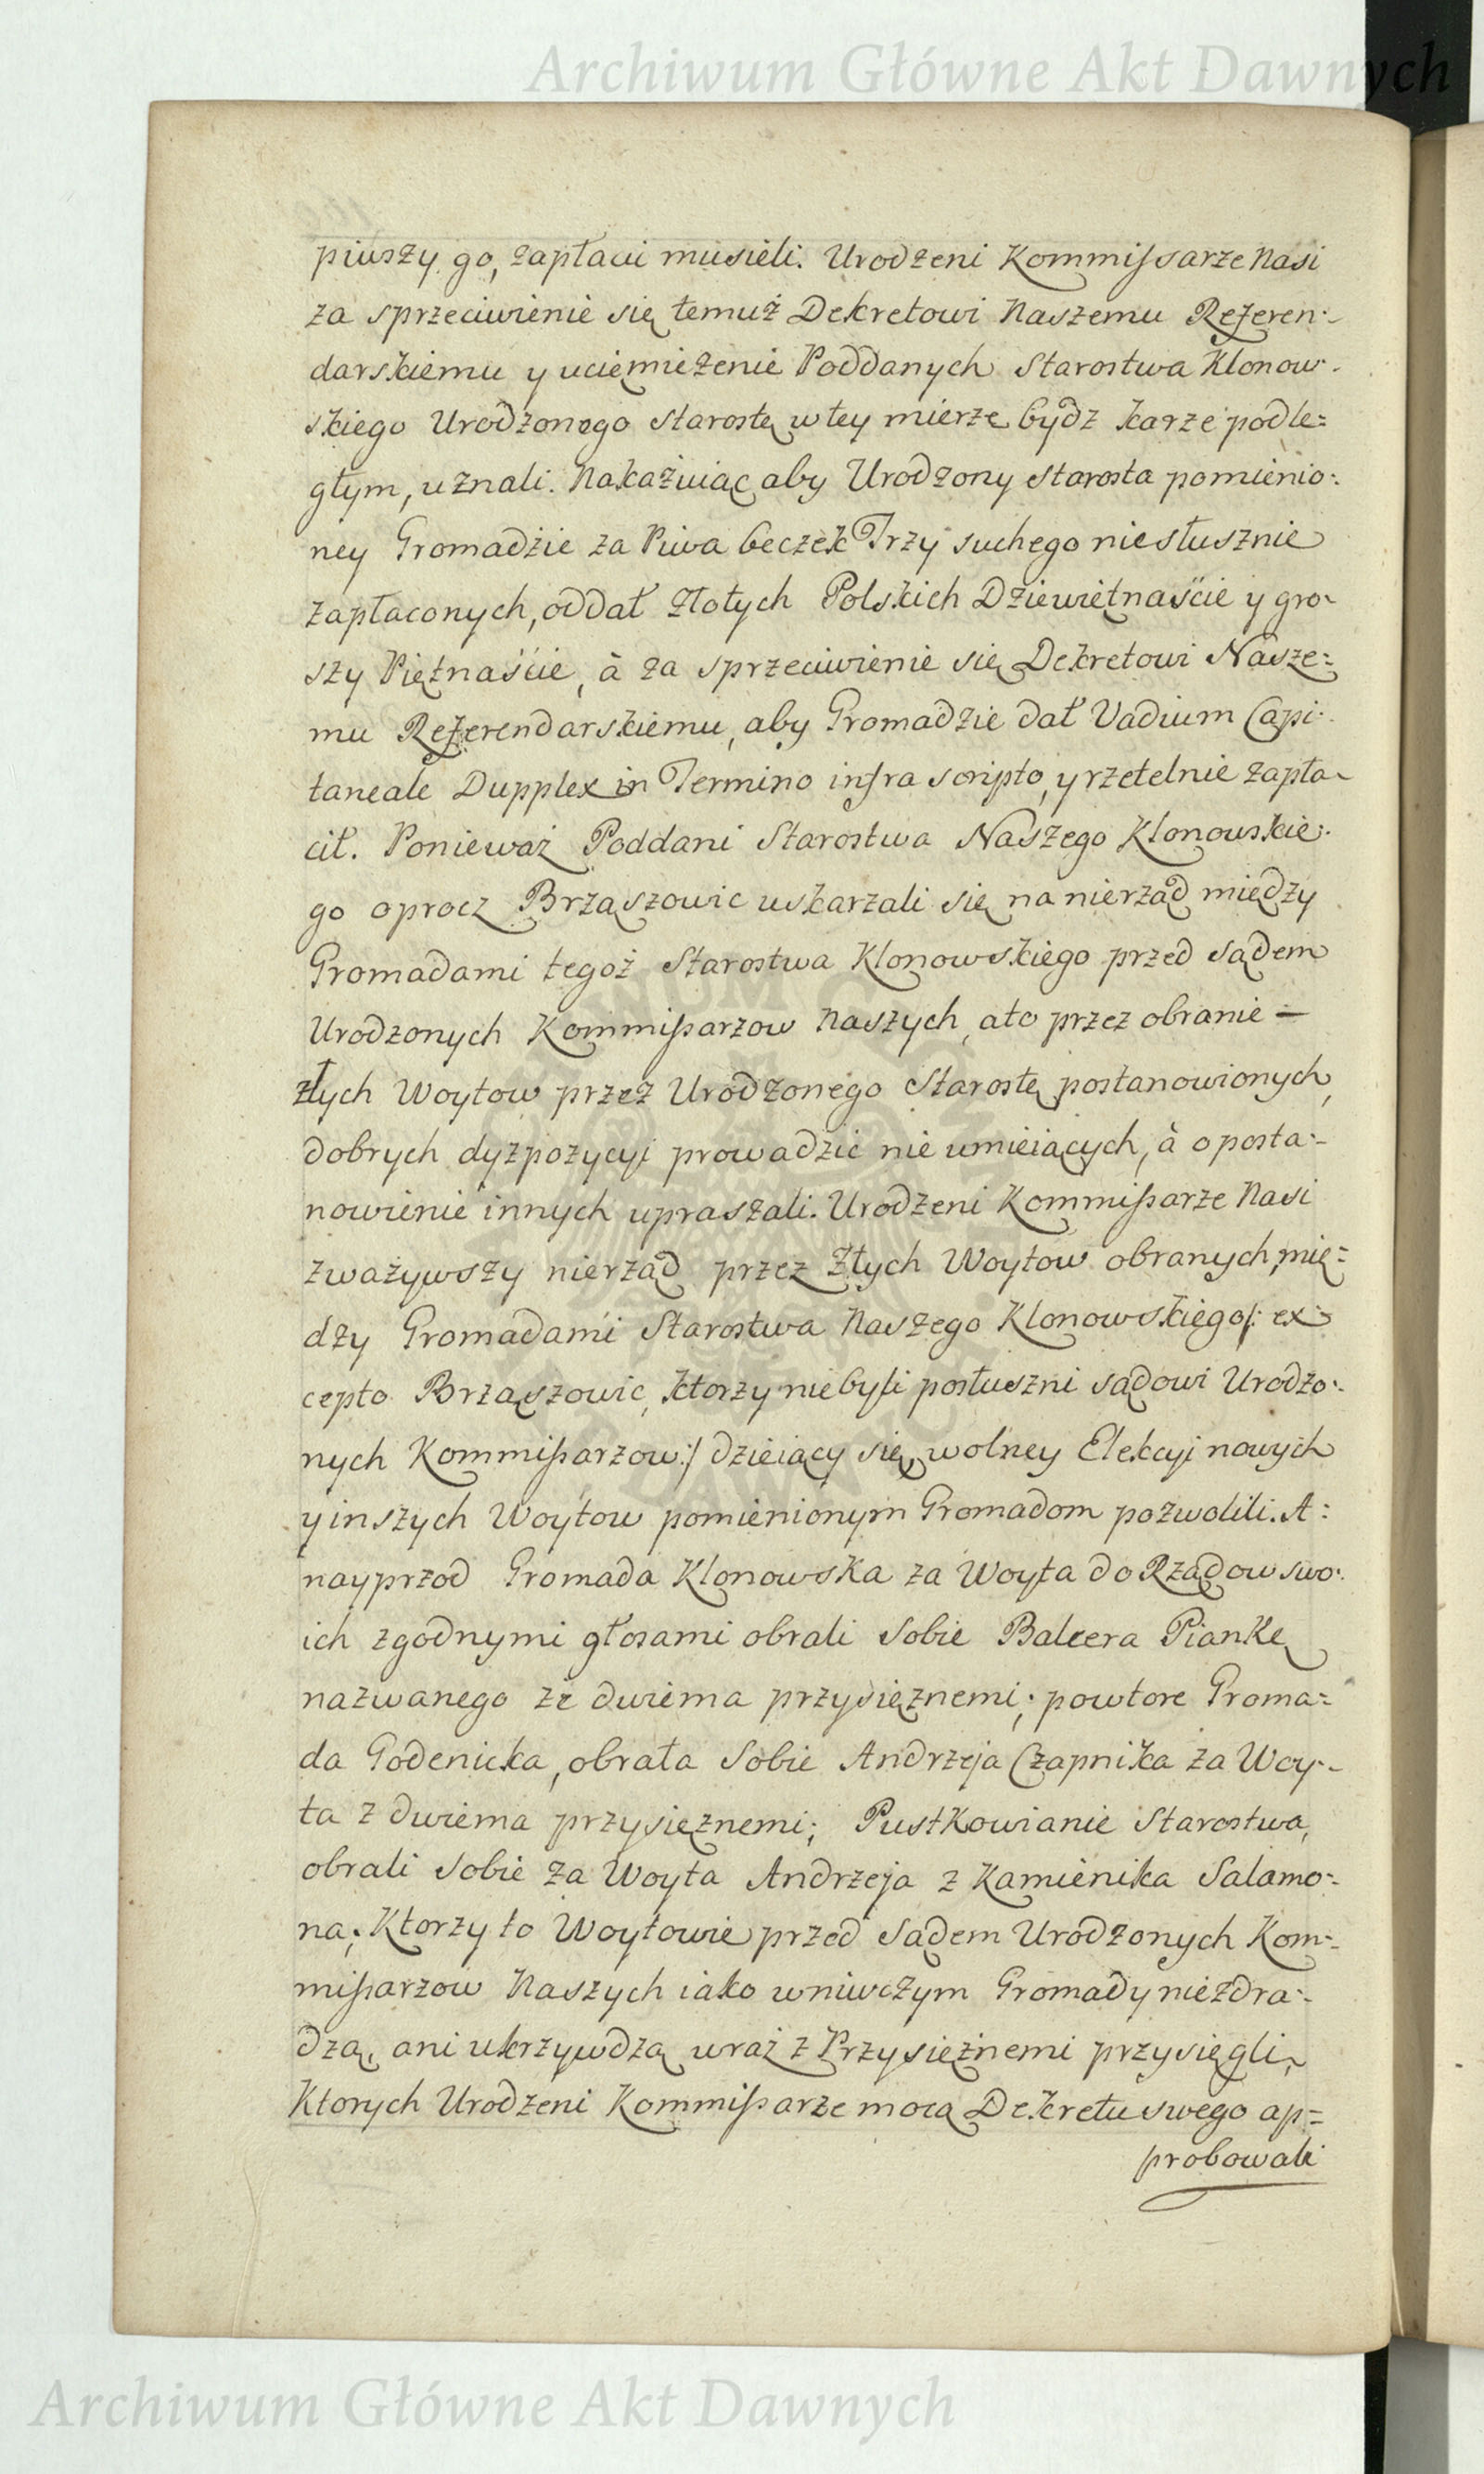 Archiwum Główne Akt Dawnych
piwszy go, zapłacic musieli. Urodzeni Kommissarze Nasi
za sprzeciwienie się temuż Dekretowi Naszemu Referen:-
darskiemu y uciemiezenie Poddanych Starostwa Klonow:-
skiego Urodzonego Starostę w tey mierze bydz karze podle=
głym, uznali. Nakazuiąc aby Urodzony Starosta pomienio:-
ney Gromadzie za Piwa beczek Trzy suchego niesłusznie
zapłaconych, oddał Złotych Polskich Dziewiętnaście y gro-
szy Piętnaście, à za sprzeciwienie się Dekretowi Nasze=
mu Referendarskiemu, aby Gromadzie dał Vadium Capi:-
taneale Dupplex in Termino infra scripto, y rzetelnie zapła-
cił. Ponieważ Poddani Starostwa Naszego Klonowskie:-
go oprocz Brząszowic uskarzali się na nierząd między
Gromadami tegoż Starostwa Klonowskiego przed sądem
Urodzonych Kommissarzow Naszych, ato przez obranie —
złych Woytow przez Urodzonego Starostę postanowionych,
dobrych dyzpozycyi prowadzic nie umieiących, à o posta:-
nowienie innych upraszali. Urodzeni Kommissarze Nasi
zważywszy nierząd przez Złych Woytow obranych, mię=
dzy Gromadami Starostwa Naszego Klonowskiego /: ex
cepto Brząszowic, ktorzy niebyli posłuszni sądowi Urodzo:-
nych Kommissarzow :/ dzieiący się, wolney Elekcyi nowych
y inszych Woytow pomienionym Gromadom pozwolili. A:
nayprzod Gromada Klonowska za Woyta do Rządow swo:-
ich zgodnymi głosami obrali Sobie Balcera Piankę
nazwanego ze dwiema przysięznemi; powtore Groma=
da Godenicka, obrała Sobie Andrzeja Czapnika za Woy:-
ta z dwiema przysięznemi; Pustkowianie Starostwa,
obrali Sobie za Woyta Andrzeja z Kamienika Salamo:-
na; Ktorzy to Woytowie przed Sądem Urodzonych Kom:-
missarzow Naszych iako wniwczym Gromady niezdra:-
dzą, ani ukrzywdzą wraz z Przysiężnemi przysięgli,
Ktorych Urodzeni Kommissarze mocą Dekretu swego ap=
probowali
Archiwum Główne Akt Dawnych